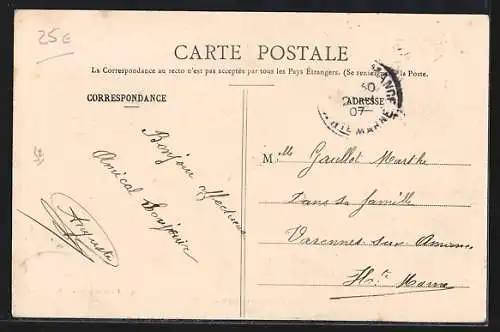 25€
CARTE POSTALE
La Correspondance au recto n'est pas acceptée par tous les Pays Étrangers. (Se renseigner à la Poste.
CORRESPONDANCE
ADRESSE
07
HTE MARNE
Bonjour
Amical Bonjour
Auguste
M lle Gaullot Marthe
Dans sa famille
Varennes sur Amance
Hte Marne